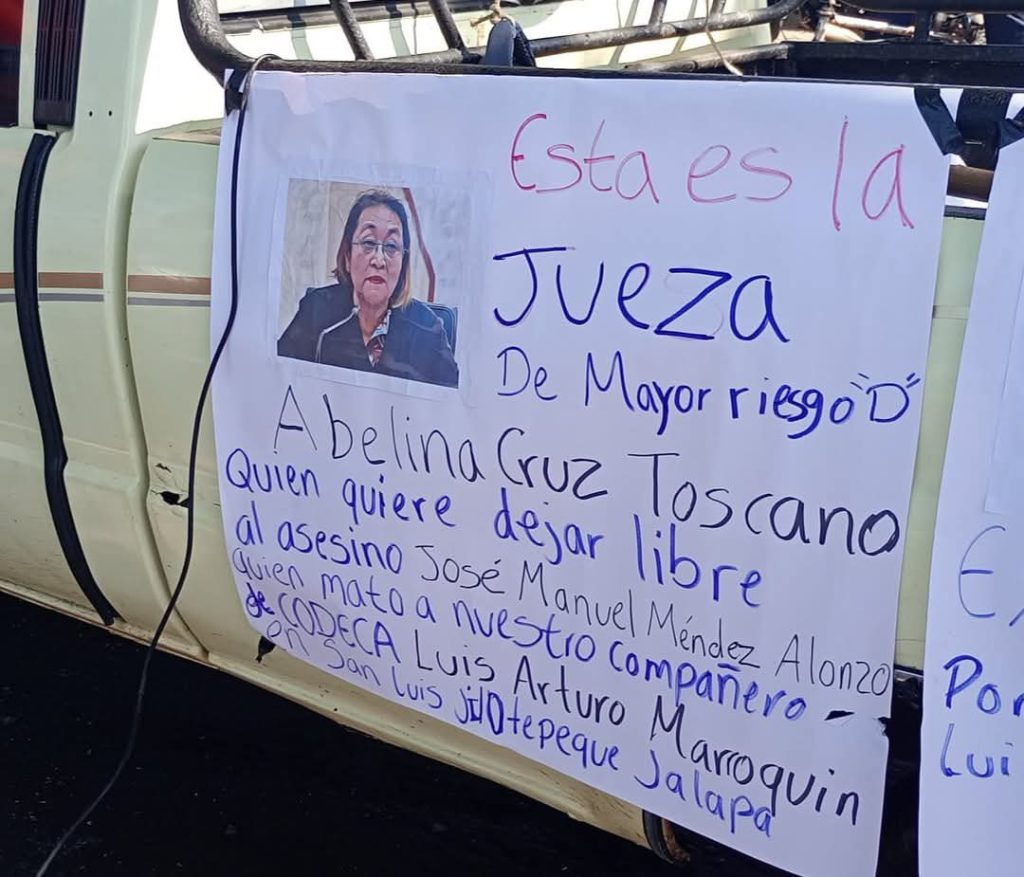 Esta es la
Jueza
De Mayor riesgo "D"
Abelina Cruz Toscano
Quien quiere dejar libre
al asesino José Manuel Méndez Alonzo
quien mato a nuestro compañero -
de CODECA Luis Arturo Marroquin
en San Luis Jilotepeque Jalapa
Por
Lui